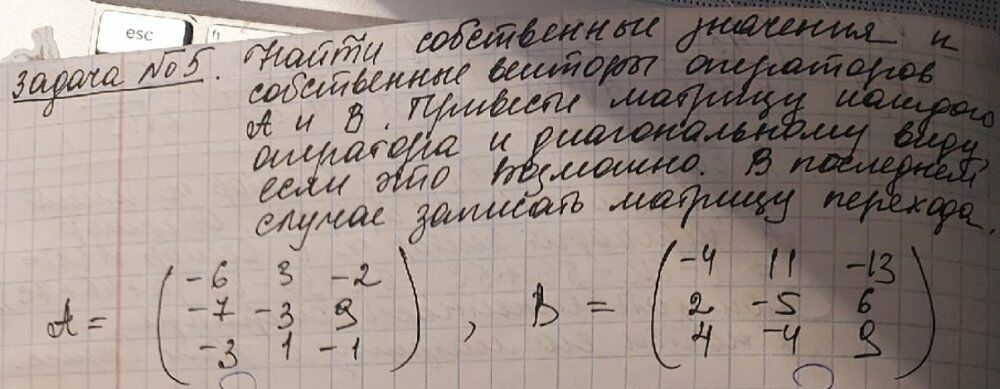 esc
Задача №5. Найти собственные значения и
собственные векторы операторов
A и B. Привести матрицу каждого
оператора к диагональному виду,
если это возможно. В последнем
случае записать матрицу перехода.
A = ( -6 3 -2
-7 -3 9
-3 1 -1 ) , B = ( -4 11 -13
2 -5 6
4 -4 9 )